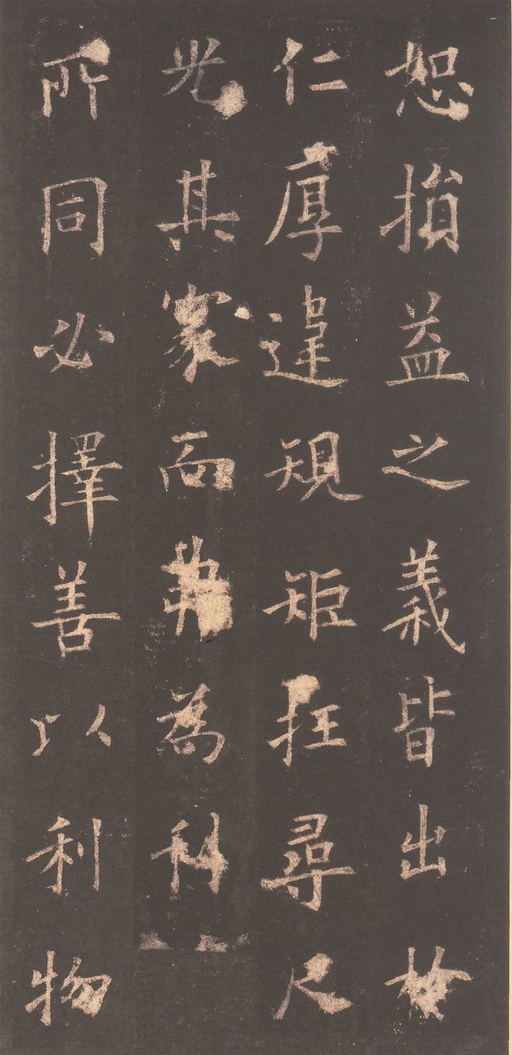 恕損益之義皆出於
仁厚違規矩枉尋尺
光其而為科
所同必擇善以利物